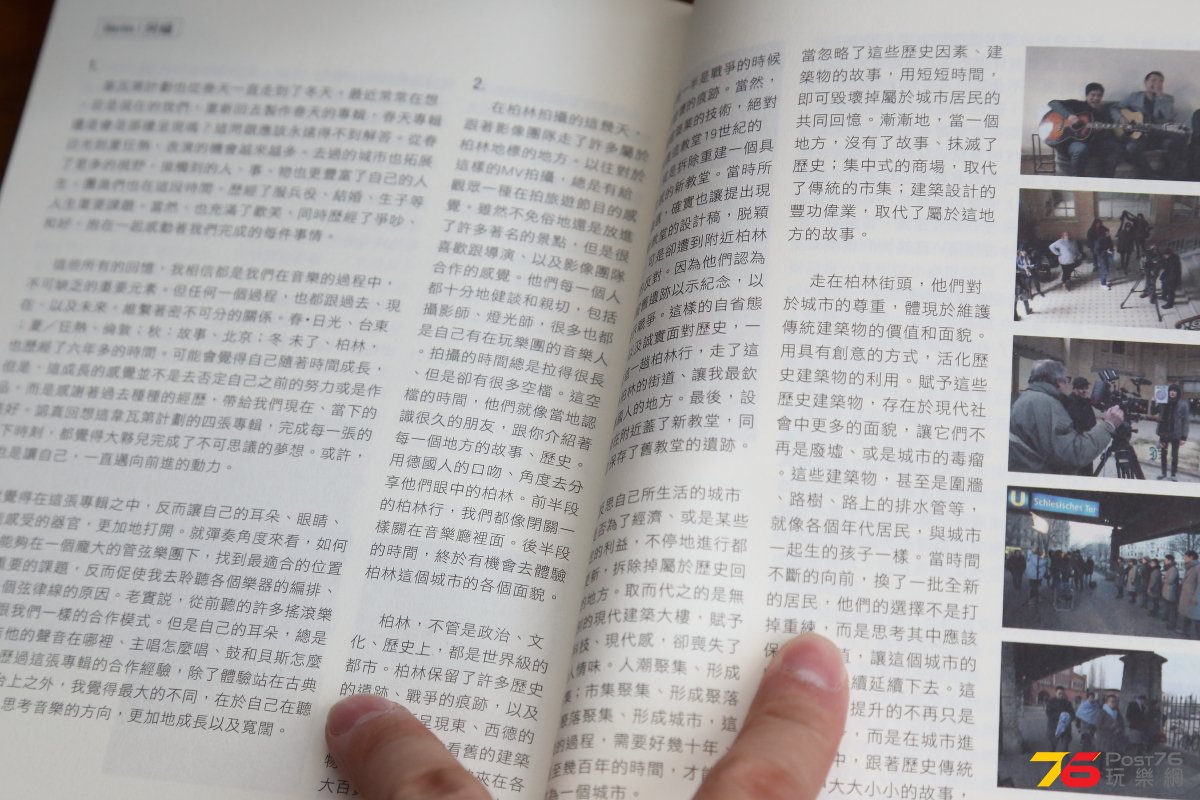 1.
韋瓦第計劃也從春天一直走到了冬天。最近常常在想
生，團員們也在這段時間，歷經了服兵役、結婚、生子等
人生重要課題。當然，也充滿了歡笑，同時歷經了爭吵、
和好，抱在一起感動著我們完成的每件事情。
這些所有的回憶，我相信都是我們在音樂的過程中，
不可缺乏的重要元素。但任何一個過程，也都跟過去、現
在、以及未來，維繫著密不可分的關係。春•日光、台東
；夏／狂熱、倫敦；秋：故事、北京；冬 未了、柏林，
也歷經了六年多的時間。可能會覺得自己隨著時間成長，
但是、這成長的感覺並不是去否定自己之前的努力或是作
品，而是感謝著過去種種的經歷，帶給我們現在、當下的
美好。認真回想這韋瓦第計劃的四張專輯，完成每一張的
下時刻，都覺得大夥兒完成了不可思議的夢想。或許，
也是讓自己，一直邁向前進的動力。
覺得在這張專輯之中，反而讓自己的耳朵、眼睛、
感受的器官，更加地打開。就彈奏角度來看，如何
能夠在一個龐大的管弦樂團下，找到最適合的位置
重要的課題，反而促使我去聆聽各個樂器的編排、
個弦律線的原因。老實說，從前聽的許多搖滾樂
跟我們一樣的合作模式。但是自己的耳朵，總是
他的聲音在哪裡、主唱怎麼唱、鼓和貝斯怎麼
歷過這張專輯的合作經驗，除了體驗站在古典
台上之外，我覺得最大的不同，在於自己在聽
思考音樂的方向，更加地成長以及寬闊。
2.
在柏林拍攝的這幾天，
跟著影像團隊走了許多屬於
柏林地標的地方。以往對於
這樣的MV拍攝，總是有給
觀眾一種在拍旅遊節目的感
覺。雖然不免俗地還是放進
了許多著名的景點，但是很
喜歡跟導演、以及影像團隊
合作的感覺。他們每一個人
都十分地健談和親切，包括
攝影師、燈光師，很多也都
是自己有在玩樂團的音樂人
。拍攝的時間總是拉得很長
、但是卻有很多空檔。這空
檔的時間，他們就像當地認
識很久的朋友，跟你介紹著
每一個地方的故事、歷史。
用德國人的口吻、角度去分
享他們眼中的柏林。前半段
的柏林行，我們都像閉關一
樣關在音樂廳裡面。後半段
的時間，終於有機會去體驗
柏林這個城市的各個面貌。
柏林，不管是政治、文
化、歷史上，都是世界級的
都市。柏林保留了許多歷史
的遺跡、戰爭的痕跡，以及
呈現東、西德的
看舊的建築
夾在各
大百
半是戰爭的時候
的痕跡。當然，
業的技術，絕對
教堂19世紀的
是拆除重建一個具
的新教堂。當時所
，確實也讓提出現
教堂的設計稿，脫穎
可是卻遭到附近柏林
反對。因為他們認為
舊遺跡以示紀念，以
戰爭。這樣的自省態
及誠實面對歷史，一
一趟柏林行，走了這
柏林的街道、讓我最欽
國人的地方。最後，設
在附近蓋了新教堂，同
保存了舊教堂的遺跡。
反思自己所生活的城市
否為了經濟、或是某些
的利益，不停地進行都
更新，拆除掉屬於歷史回
的地方。取而代之的是無
的現代建築大樓，賦予
科技、現代感，卻喪失了
人情味。人潮聚集、形成
集；市集聚集、形成聚落
聚落聚集、形成城市，這
的過程，需要好幾十年、
至幾百年的時間，才能
為一個城市。
當忽略了這些歷史因素、建
築物的故事，用短短時間，
即可毀壞掉屬於城市居民的
共同回憶。漸漸地，當一個
地方，沒有了故事、抹滅了
歷史；集中式的商場，取代
了傳統的市集；建築設計的
豐功偉業，取代了屬於這地
方的故事。
走在柏林街頭，他們對
於城市的尊重，體現於維護
傳統建築物的價值和面貌。
用具有創意的方式，活化歷
史建築物的利用。賦予這些
歷史建築物，存在於現代社
會中更多的面貌，讓它們不
再是廢墟、或是城市的毒瘤
。這些建築物，甚至是圍牆
、路樹、路上的排水管等，
就像各個年代居民，與城市
一起生的孩子一樣。當時間
不斷的向前，換了一批全新
的居民，他們的選擇不是打
掉重練，而是思考其中應該
保 值，讓這個城市的
續延續下去。這
提升的不再只是
，而是在城市進
中，跟著歷史傳統
大大小小的故事，
U Schlesisches Tor
76 Post76
玩樂網